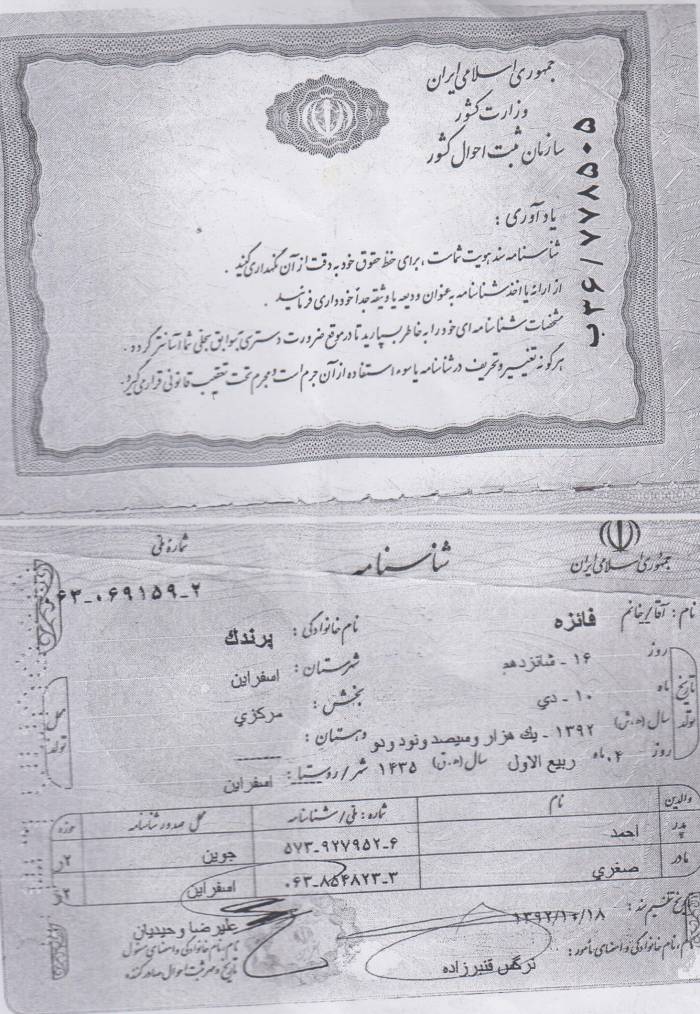 جمهوری اسلامی ایران
وزارت کشور
سازمان ثبت احوال کشور
ب۳۶/۷۷۸۵۰۵
یادآوری :
شناسنامه سند هویت شماست ، برای حفظ حقوق خود به دقت از آن نگهداری کنید .
از ارائه یا اخذ شناسنامه به عنوان ودیعه یا وثیقه جداً خودداری فرمائید .
مشخصات شناسنامه ای خود را به خاطر بسپارید تا در موقع ضرورت دسترسی به سوابق سجلی شما آسانتر گردد .
هرگونه تغییر و تحریف در شناسنامه یا سوء استفاده از آن جرم است و مجرم تحت تعقیب قانونی قرار می گیرد .
جمهوری اسلامی ایران
شناسنامه
شماره ملی
۰۶۳-۰۶۹۱۵۹-۲
نام : آقا/خانم فائزه نام خانوادگی : پرندك
تاریخ تولد
روز ۱۶ - شانزدهم شهرستان : اسفراين
ماه ۱۰ - دي بخش : مرکزي
سال (ه.ش) ۱۳۹۲ - يك هزار و سيصد و نود و دو دهستان : -----
روز ۰۴ ماه ربیع الاول سال (ه.ق) ۱۴۳۵ شهر / روستا : اسفراين
محل تولد
والدین نام شماره : ملی / شناسنامه محل صدور شناسنامه حوزه
پدر احمد ۵۷۳-۹۲۷۹۵۲-۶ جوين ۲ر
مادر صغري ۰۶۳-۸۵۴۸۲۳-۳ اسفراين
تاریخ تنظیم سند : ۱۳۹۲/۱۰/۱۸
نام ، نام خانوادگی و امضای مأمور : نرگس قنبرزاده
علیرضا وحیدیان
نام ، نام خانوادگی و امضای مسئول
تاریخ و مهر ثبت احوال صادر کننده